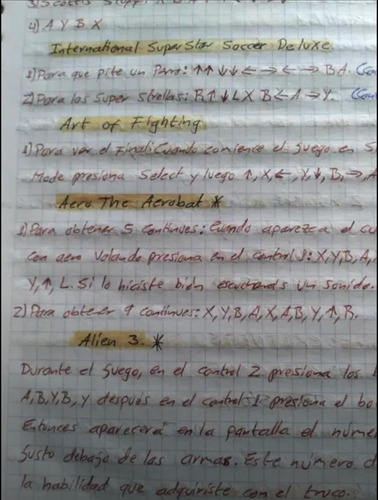 4) A Y B X
International Super Star Soccer Deluxe.
1) Para que pite un Perro: ↑↑↓↓←→←→ B A. (Con
2) Para las Super Strellas: R↑↓L X B←A→Y. (Con
Art of Fighting
1) Para ver el Final: Cuando comience el juego en S
Mode presiona Select y luego ↑, X, ←, Y, ↓, B, →, A
Aero The Acrobat *
1) Para obtener 5 Continues: Cuando aparezca el cu
con aero Volando presiona en el control 1: X, Y, B, A,
Y, ↑, L. Si lo hiciste bién escuchards un sonido.
2) Para obtener 9 continues: X, Y, B, A, X, A, B, Y, ↑, R.
Alien 3. *
Durante el Juego, en el control 2 presiona los b
A, B, Y, B, Y después en el control 1 presiona el bo
Entonces aparecerá en la pantalla el númer
Justo debajo de las armas. Este número d
la habilidad que adquiriste con el truco.